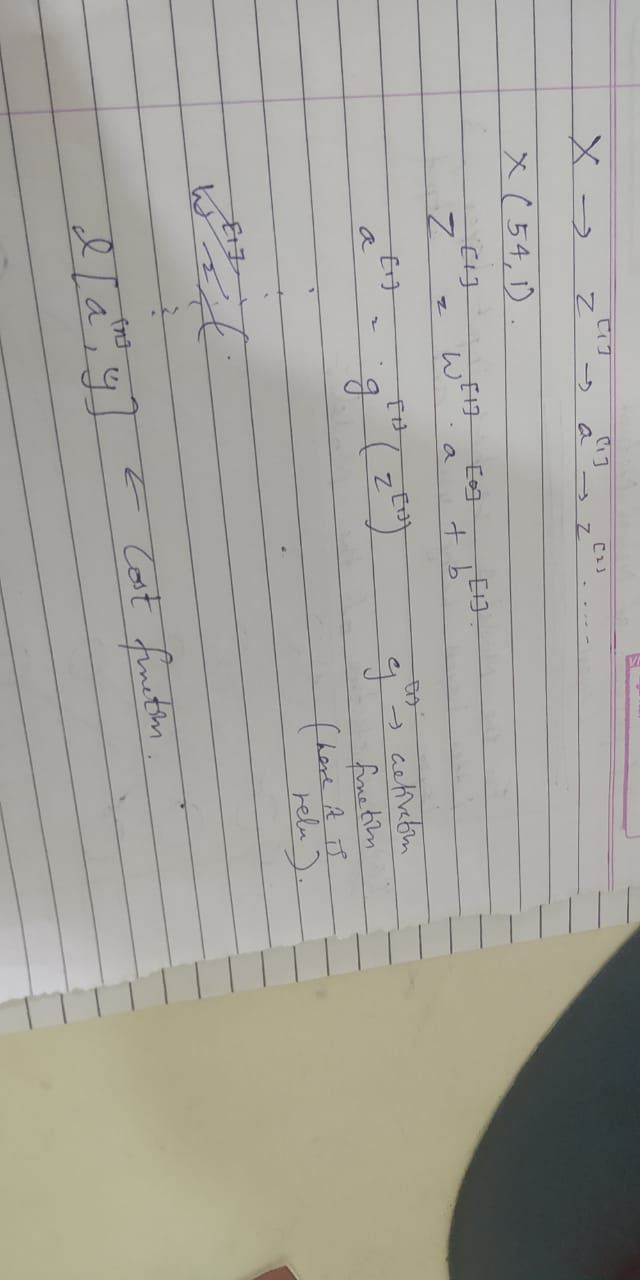 X → Z^[1] → a^[1] → Z^[2] .....
X (54, 1).
Z^[1] = W^[1] . a^[0] + b^[1].
a^[1] = . g^[1] (Z^[1])    g^[1] → activation
function
(here it is
relu).
l [a^[n], y] ← Cost function.